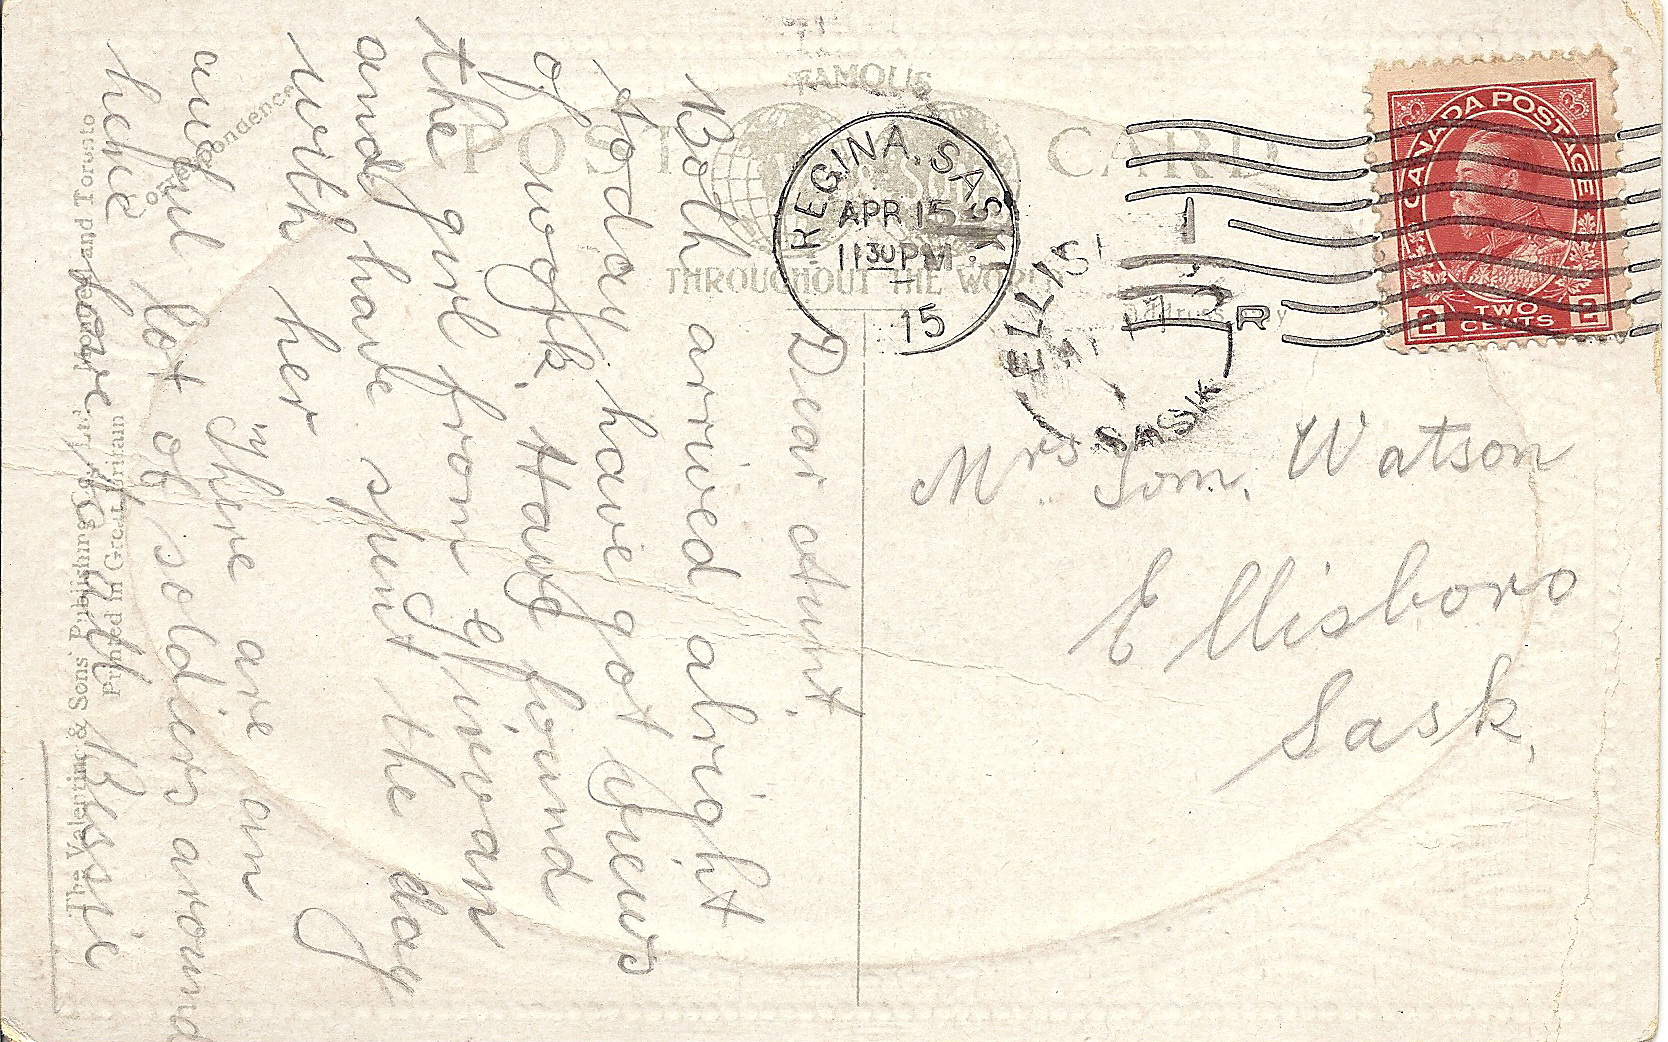 FAMOUS
POST CARD
THROUGHOUT THE WORLD
REGINA, SASK.
APR 15
11 30 PM
15
ELLIS
SASK
R
CANADA POSTAGE
2 TWO CENTS 2
Correspondence
Dear Aunt,
Both arrived alright
today have got views
of work. Have found
the girl from Girvan
and have spent the day
with her
There are an
awful lot of soldiers around
here
Bessie
Mrs. Tom. Watson
Ellisboro
Sask.
The Valentine & Sons' Publishing Co., Ltd. Montreal and Toronto
Printed in Great Britain